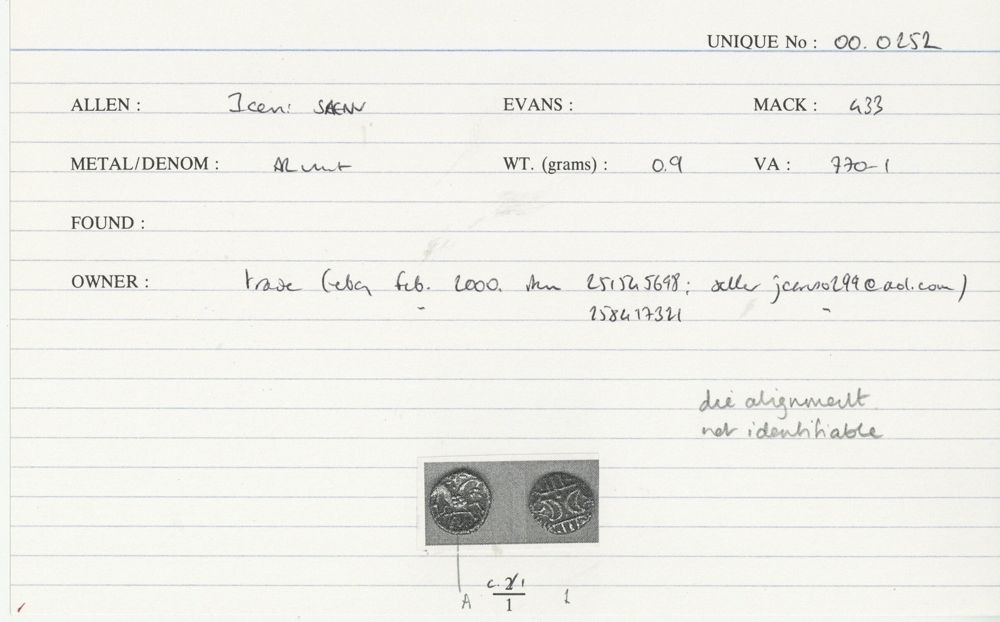 UNIQUE No : 00.0252
ALLEN : Iceni SAENV EVANS : MACK : 433
METAL/DENOM : AR unit WT. (grams) : 0.9 VA : 770-1
FOUND :
OWNER : trade (eBay Feb. 2000. item 251545698; seller jcaruso299@aol.com)
258417321
die alignment
not identifiable
c. 2/1
A 1 1